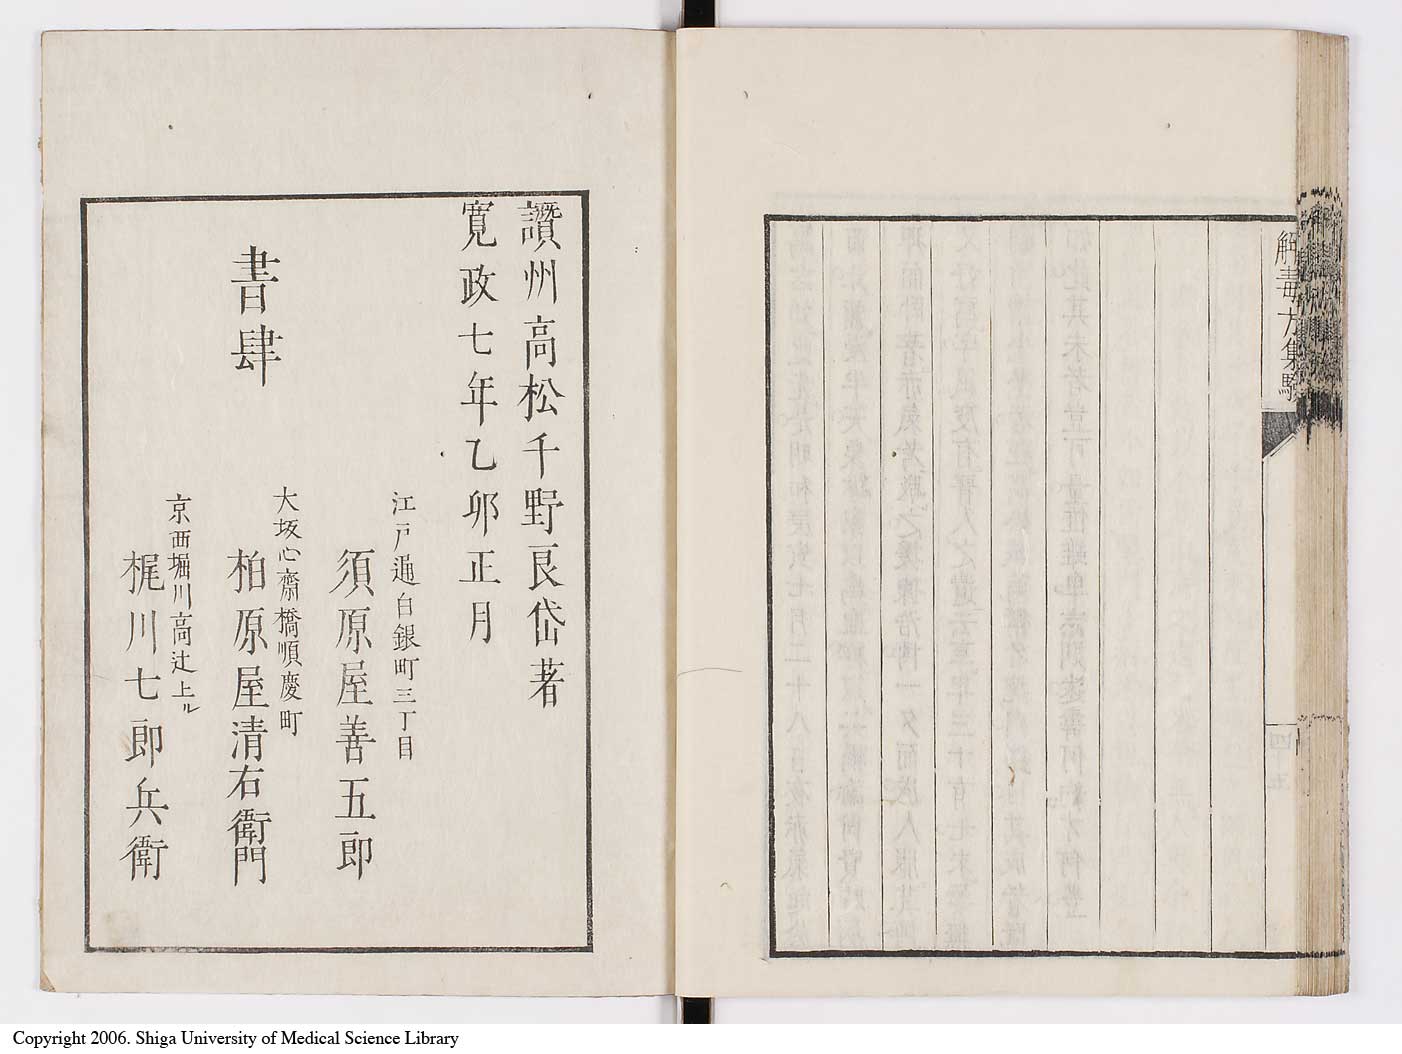 解毒方集驗
四十五
讚州高松千野良岱著
寛政七年乙卯正月
書肆
江戸通白銀町三丁目
須原屋善五郎
大坂心齋橋順慶町
柏原屋清右衛門
京西堀川高辻上ル
梶川七郎兵衛
Copyright 2006. Shiga University of Medical Science Library